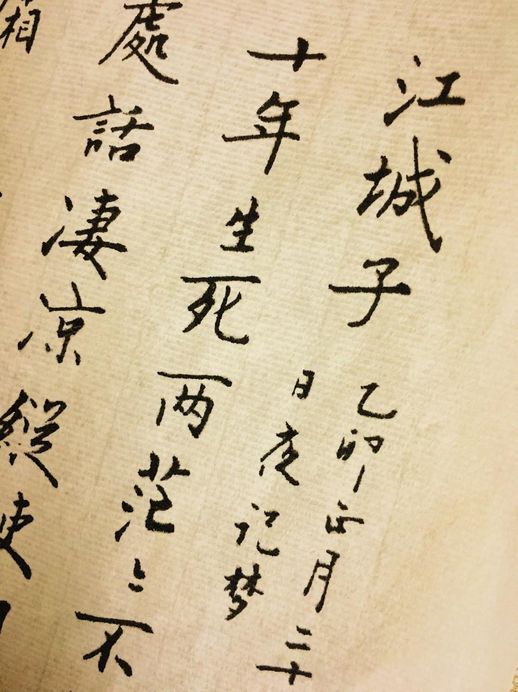 江城子 乙卯正月二十
日夜记梦
十年生死两茫〻不
處話凄凉縱使
顔